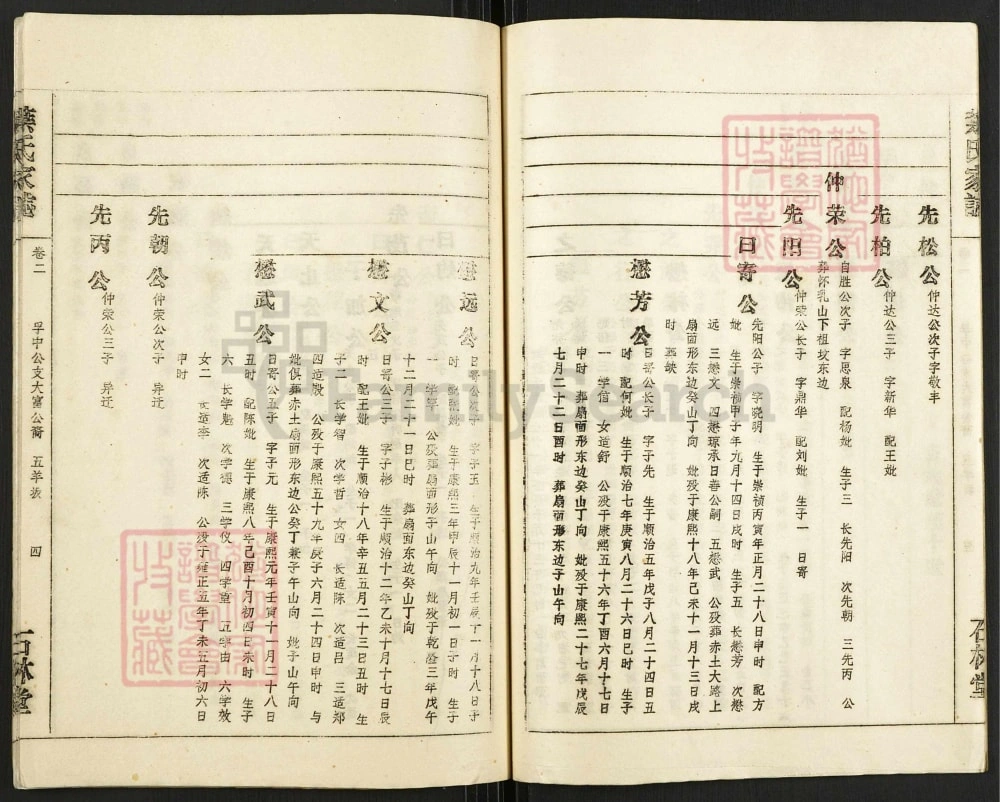 先松公
仲达公次子字敬丰
先柏公
仲达公三子 字新华 配王妣
仲荣公
自胜公次子 字思泉 配杨妣 生子三 长先阳 次先朝 三先丙 公
葬怀乳山下祖坟东边
先阳公
仲荣公长子 字鼎华 配刘妣 生子一 日寄
日寄公
先阳公子 字晓明 生于崇祯丙寅年正月二十八日申时 配方
妣 生于崇祯甲子年九月十四日戌时 生子五 长懋芳 次懋
远 三懋文 四懋琼承日善公嗣 五懋武 公殁葬赤土大路上
扇面形东边癸山丁向 妣殁于康熙十八年己未十一月十三日戌
时
懋芳公
日寄公长子 字子先 生于顺治五年戊子八月二十四日丑
时 配何妣 生于顺治七年庚寅八月二十六日巳时 生子
一 学信 女适舒 公殁于康熙五十六年丁酉六月十七日
申时 葬扇面形东边癸山丁向 妣殁于康熙二十七年戊辰
七月二十二日酉时 葬扇面形东边子山午向
懋远公
日寄公次子 字子玉 生于顺治九年壬辰十一月十八日子
时 配熊妣 生于康熙三年甲辰十一月初一日子时 生子
一 学 公殁葬扇面形子山午向 妣殁于乾隆三年戊午
十二月二十一日巳时 葬扇面东边癸山丁向
懋文公
日寄公三子 字子彬 生于顺治十二年乙未十月十七日辰
时 配王妣 生于顺治十八年辛丑五月二十三日丑时 生
子二 长学智 次学哲 女四 长适陈 次适吕 三适郑
四适殷 公殁于康熙五十九年庚子六月二十四日申时 与
妣俱葬赤土扇面形东边公癸丁兼子午山向 妣子山午向
懋武公
日寄公五子 字子元 生于康熙元年壬寅十一月二十八日
丑时 配陈妣 生于康熙八年己酉十月初四日未时 生子
六 长学魁 次学德 三学仪 四学 五学由 六学效
女二 长适李 次适陈 公殁于雍正五年丁未五月初六日
申时
先朝公
仲荣公次子 异迁
先丙公
仲荣公三子 异迁
叶氏家谱
卷二
孚中公支大富公裔 五羊派
四
石林堂
叶氏家谱
石林堂
FamilySearch